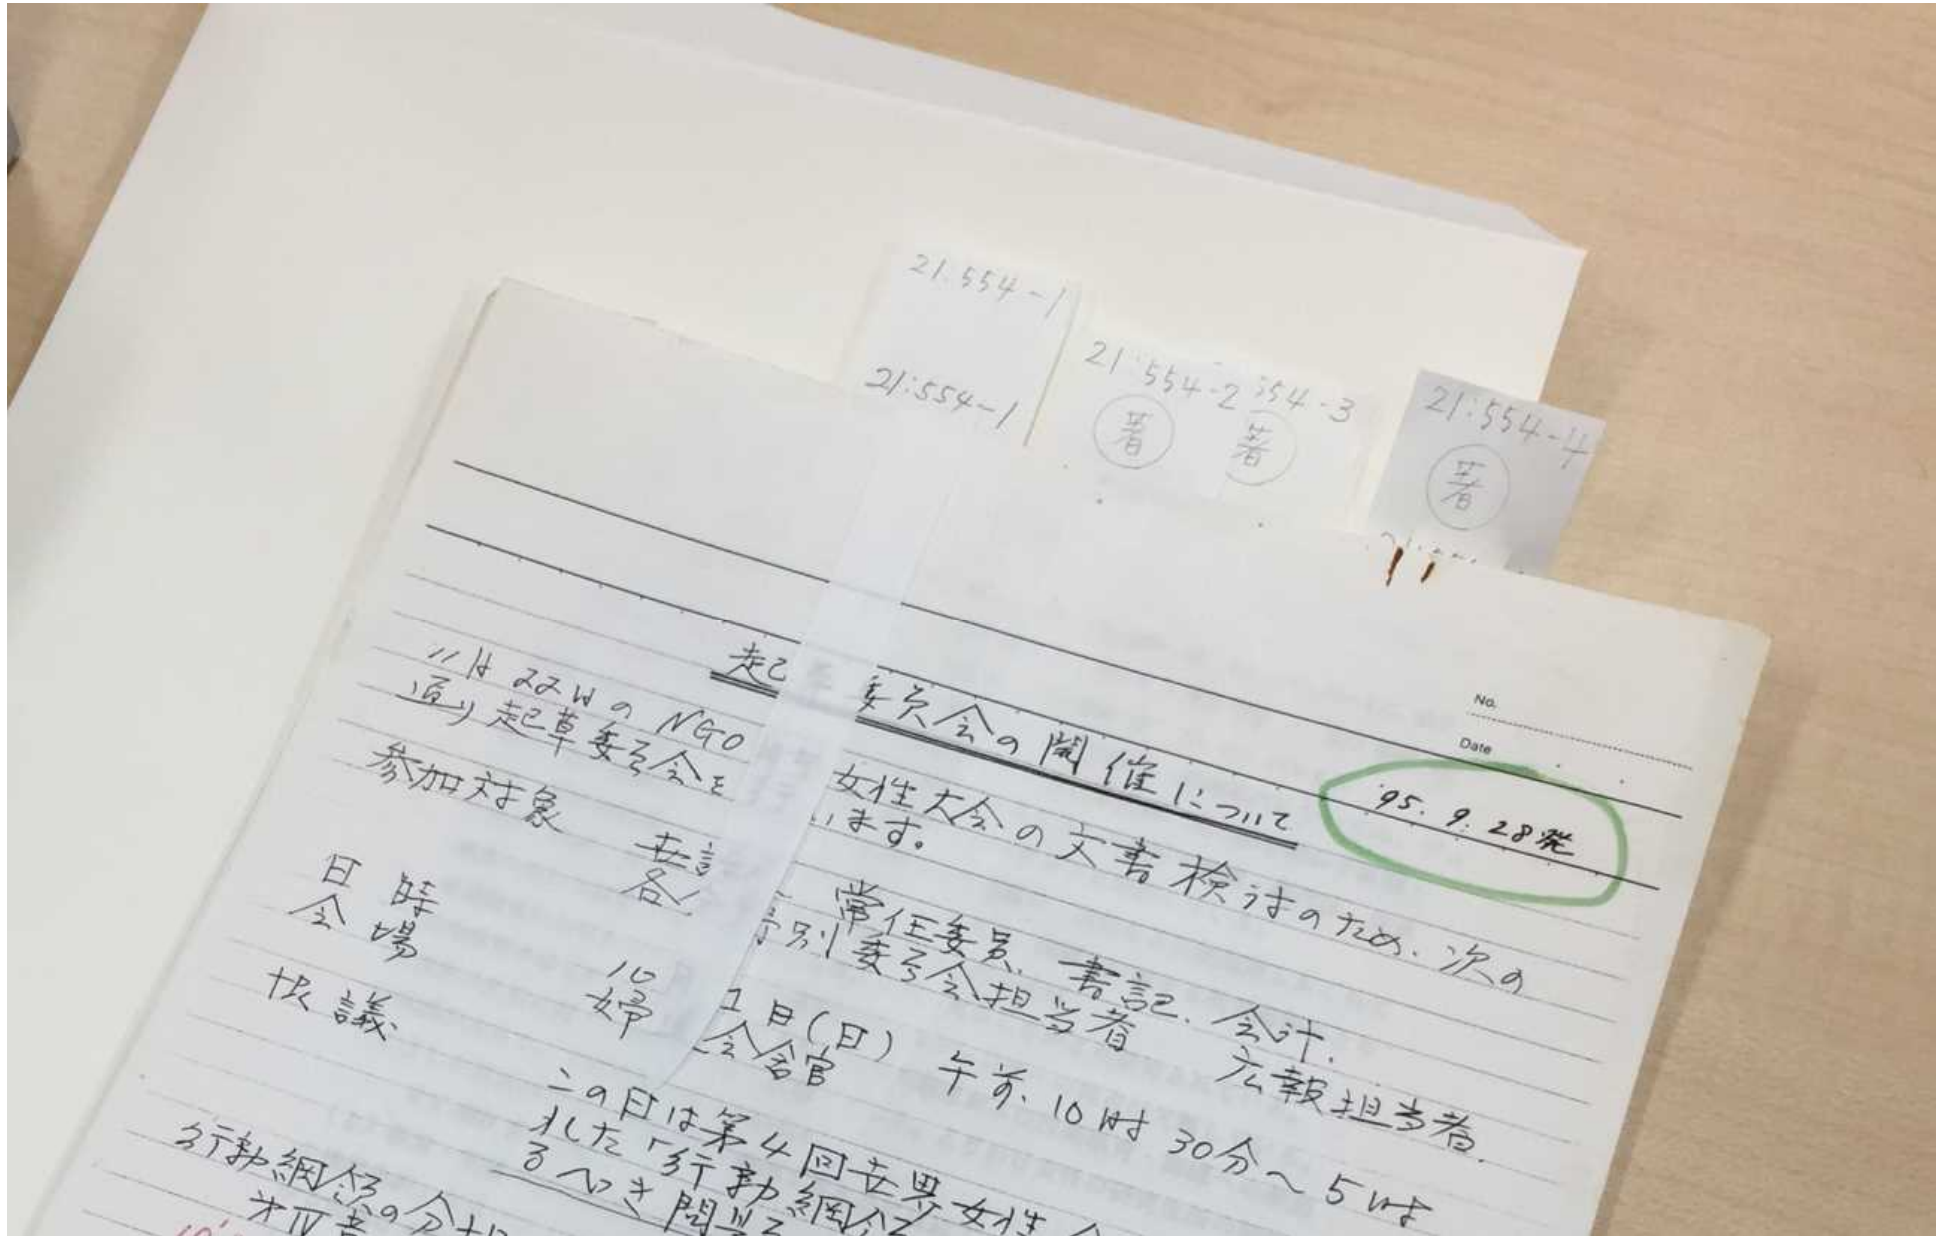 21:554-1
21:554-1
21:554-2
554-3
21:554-4
著
著
著
No.
Date
'95. 9. 28発
起草委員会の開催について
11月22日のNGO 女性大会の文書検討のため、次の
通り起草委員会を います。
参加対象 常任委員、書記、会計、
各 特別委員会担当者 広報担当者
日時 10 1日(日) 午前、10時30分~5時
会場 婦 会館
協議 この日は第4回世界女性会
れた「行動綱領
るべき
行動綱領の分担
オIV章